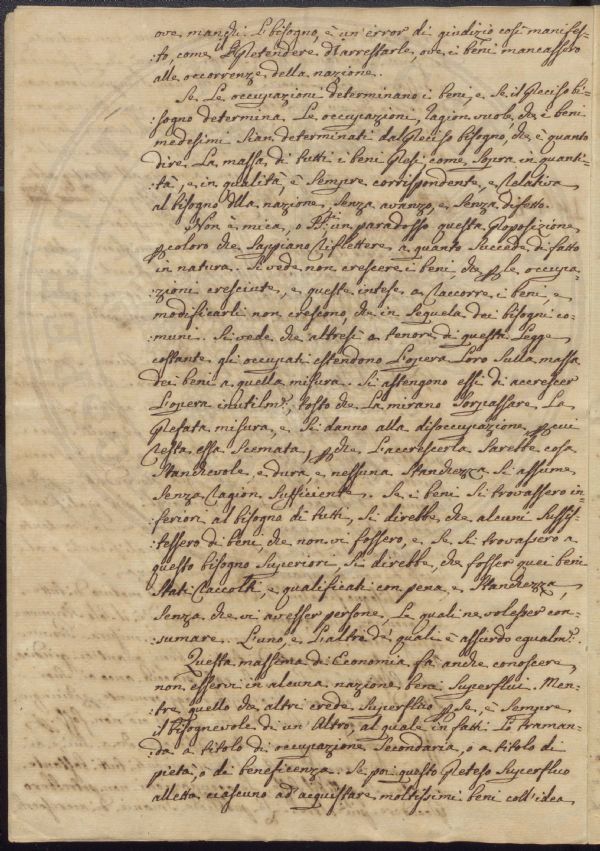 ove manchi il bisogno, è un'error di giudizio così manifes-
:to, come il pretendere d'arrestarle, ove i beni mancassero
alle occorrenze della nazione.
Se le occupazioni determinano i beni, e se il preciso bi-
:sogno determina le occupazioni, ragion vuole, che i beni
medesimi sian determinati dal preciso bisogno, che è quanto
dire. La massa di tutti i beni presi come sopra in quanti-
tà, e in qualità, è sempre corrispondente, e relativa
al bisogno della nazione, senza avanzo, e senza difetto.
Non è mica, o un paradosso questa proposizione
p coloro che sappiano riflettere a quanto succede di fatto
in natura. Si vede non crescere i beni, che p le occupa-
zioni cresciute, e queste intese a raccorre i beni, e
modificarli non crescono, che in seguela dei bisogni co-
muni. Si vede che altresì a tenore di questa legge
costante gli occupati estendono l'opera loro sulla massa
dei beni a quella misura. Si astengono essi di accrescer
l'opera inutilm.e, tosto che la mirano sorpassare la
prefata misura, e si danno alla disoccupazione, p cui
resta essa scemata, p che l'accrescerla sarebbe cosa
stanchevole, e dura, e nessuna stanchezza si assume
senza ragion sufficiente. Se i beni si trovassero in-
feriori al bisogno di tutti, si direbbe, che alcuni sussis-
:tessero di beni, che non vi fossero, e se si trovassero a
questo bisogno superiori, si direbbe, che fosser quei beni
stati raccolti, e qualificati con pena, e stanchezza,
senza che vi avesser persone, le quali ne volesser con-
:sumare. L'uno, e l'altro de' quali è assurdo egualm.e.
Questa massima di Economia fà anche conoscere,
non esservi in alcuna nazione beni superflui. Men-
tre quello che altri crede superfluo p se, è sempre
il bisognevole di un'altro, al quale in fatti lo traman-
da a titolo di occupazione secondaria, o a titolo di
pietà, o di beneficenza. Se poi questo preteso superfluo
alletta ciascuno ad acquistare moltissimi beni coll'idea